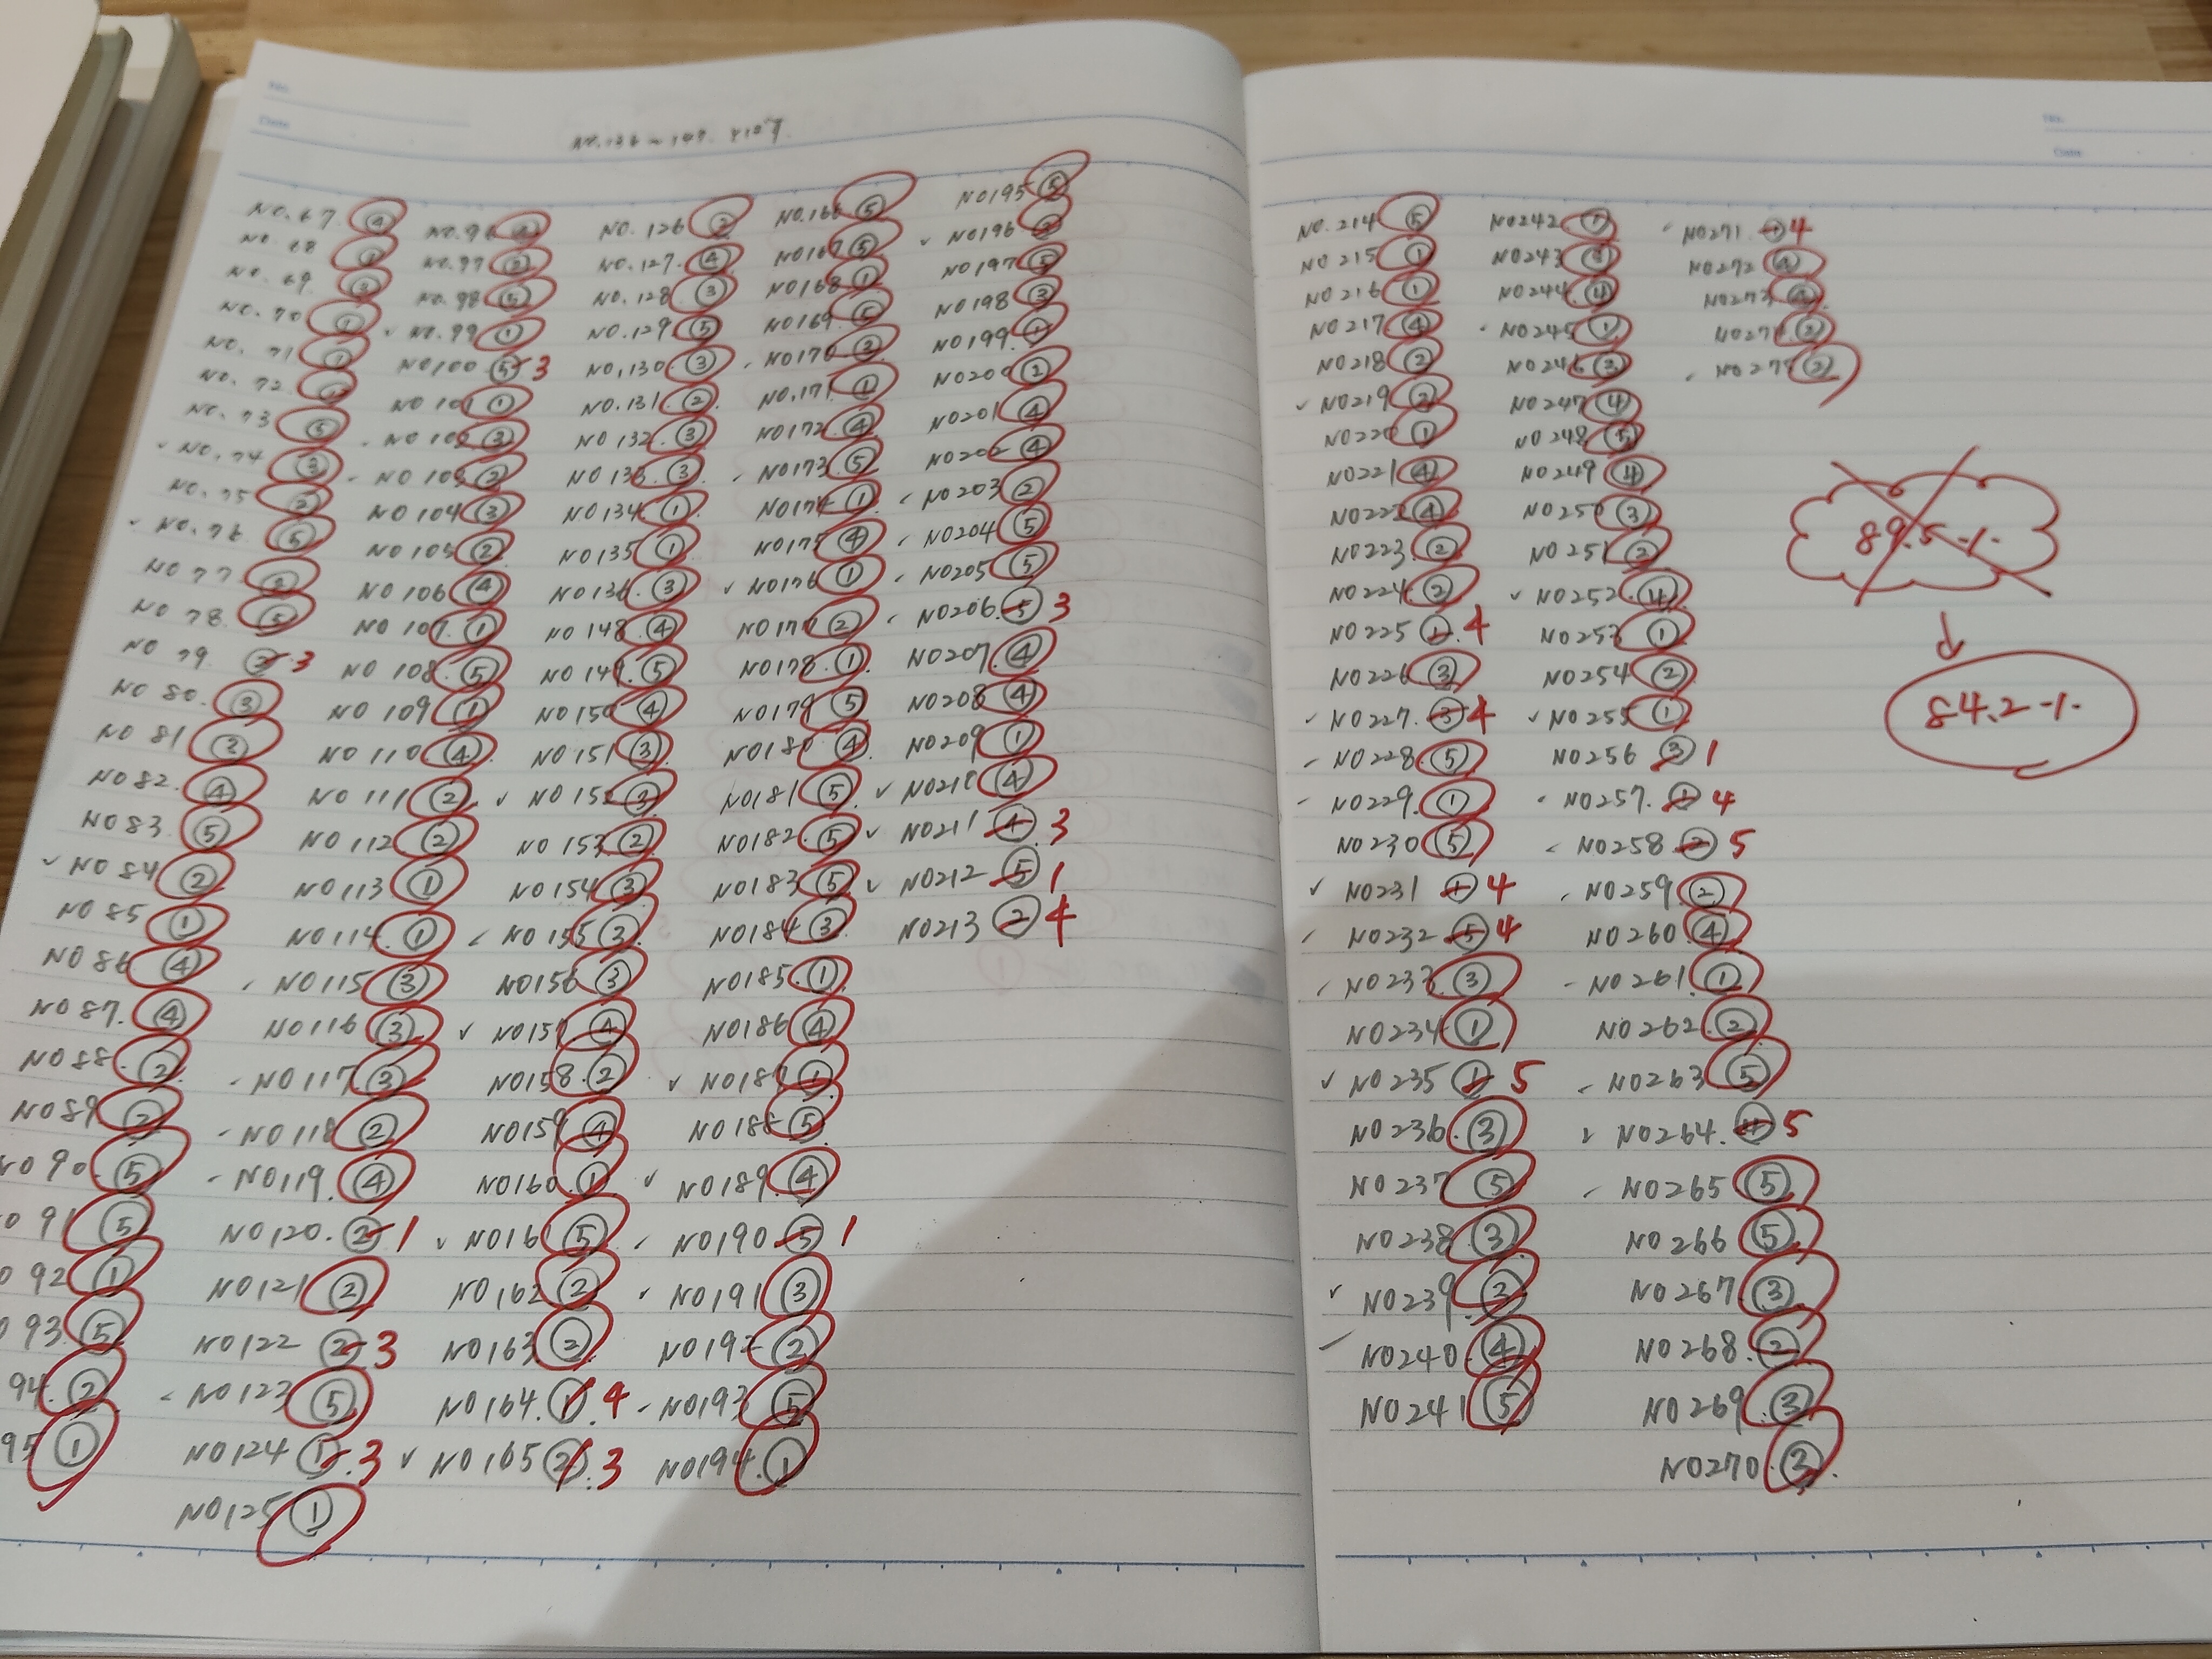 NO.67. ④
NO. 68 ②
NO. 69 ③
NO. 70 ②
NO. 71 ②
NO. 72 ②
NO. 73 ⑤
✓ NO. 74 ③
NO. 75 ②
✓ NO. 76 ⑤
NO 77 ②
NO 78. ⑤
NO 79 ② 3
NO 80. ③
NO 81 ②
NO82. ④
NO83. ⑤
✓ NO84 ②
NO85 ①
NO86 ④
NO87. ④
NO88. ②
NO89 ②
NO90. ⑤
91 ⑤
92 ①
93. ⑤
94. ②
95 ①
NO.97 ②
NO.98 ⑤
✓ NO.99 ①
NO100 ⑤ 3
NO101 ①
NO102 ③
NO103 ②
NO104 ③
NO105 ②
NO106 ④
NO107. ①
NO108. ⑤
NO109 ①
NO110. ④
NO111 ②
NO112 ②
NO113 ①
NO114. ①
NO115 ③
NO116 ③
NO117 ③
NO118 ②
NO119. ④
NO120. ② 1
NO121 ②
NO122 ② 3
NO123 ⑤
NO124 ① 3
NO125 ①
NO. 126 ②
NO.127. ④
NO.128. ③
NO.129 ⑤
NO.130. ③
NO.131. ②
NO132. ③
NO133. ③
NO134 ①
NO135 ①
NO136. ③
NO148 ④
NO149. ⑤
NO150 ④
NO151 ③
✓ NO152 ③
NO153 ②
NO154 ③
NO155 ③
NO156 ③
✓ NO157 ④
NO158. ②
NO159 ④
NO160. ①
✓ NO161 ⑤
NO162 ②
NO163 ②
NO164. ① 4
✓ NO165 ② 3
NO.166 ⑤
NO167 ⑤
NO168 ①
NO169. ⑤
NO170 ③
NO.171 ①
NO172 ④
NO173. ⑤
NO174 ①
NO175 ④
✓ NO176 ①
NO177 ②
NO178. ①
NO179 ⑤
NO180 ④
NO181 ⑤
NO182. ⑤
NO183 ⑤
NO184 ③
NO185 ①
NO186 ④
✓ NO187 ①
NO188 ⑤
✓ NO189. ④
NO190 ⑤ 1
NO191 ③
NO192 ②
NO193 ⑤
NO194. ①
NO195 ⑤
NO196 ③
NO197 ⑤
NO198 ③
NO199. ①
NO200 ②
NO201 ④
NO202 ④
NO203 ②
NO204 ⑤
NO205 ⑤
NO206. ⑤ 3
NO207. ④
NO208 ④
NO209 ①
✓ NO210 ④
✓ NO211 ④ 3
✓ NO212 ⑤ 1
NO213 ② 4
NO.214 ⑤
NO215 ①
NO216 ①
NO217. ④
NO218 ②
✓ NO219 ②
NO220 ①
NO221 ④
NO222 ④
NO223. ②
NO224. ②
NO225 ① 4
NO226 ③
✓ NO227. ③ 4
NO228. ⑤
NO229. ①
NO230 ⑤
✓ NO231 ① 4
NO232 ⑤ 4
NO233 ③
NO234 ①
✓ NO235 ① 5
NO236. ③
NO237 ⑤
NO238. ③
✓ NO239 ②
NO240. ④
NO241 ⑤
NO242. ①
NO243 ③
NO244. ④
NO245 ①
NO246 ②
NO247 ④
NO248. ⑤
NO249 ④
NO250 ③
NO251 ②
✓ NO252. ④
NO253 ①
NO254 ②
✓ NO255 ①
NO256 ③ 1
NO257. ① 4
NO258 ② 5
NO259 ②
NO260 ④
NO261 ①
NO262 ②
NO263 ⑤
✓ NO264. ④ 5
NO265 ⑤
NO266 ⑤
NO267 ③
NO268. ②
NO269 ③
NO270. ③
NO271. ① 4
NO272 ④
NO273 ④
NO274 ②
②
89.5 -1.
84.2 -1.